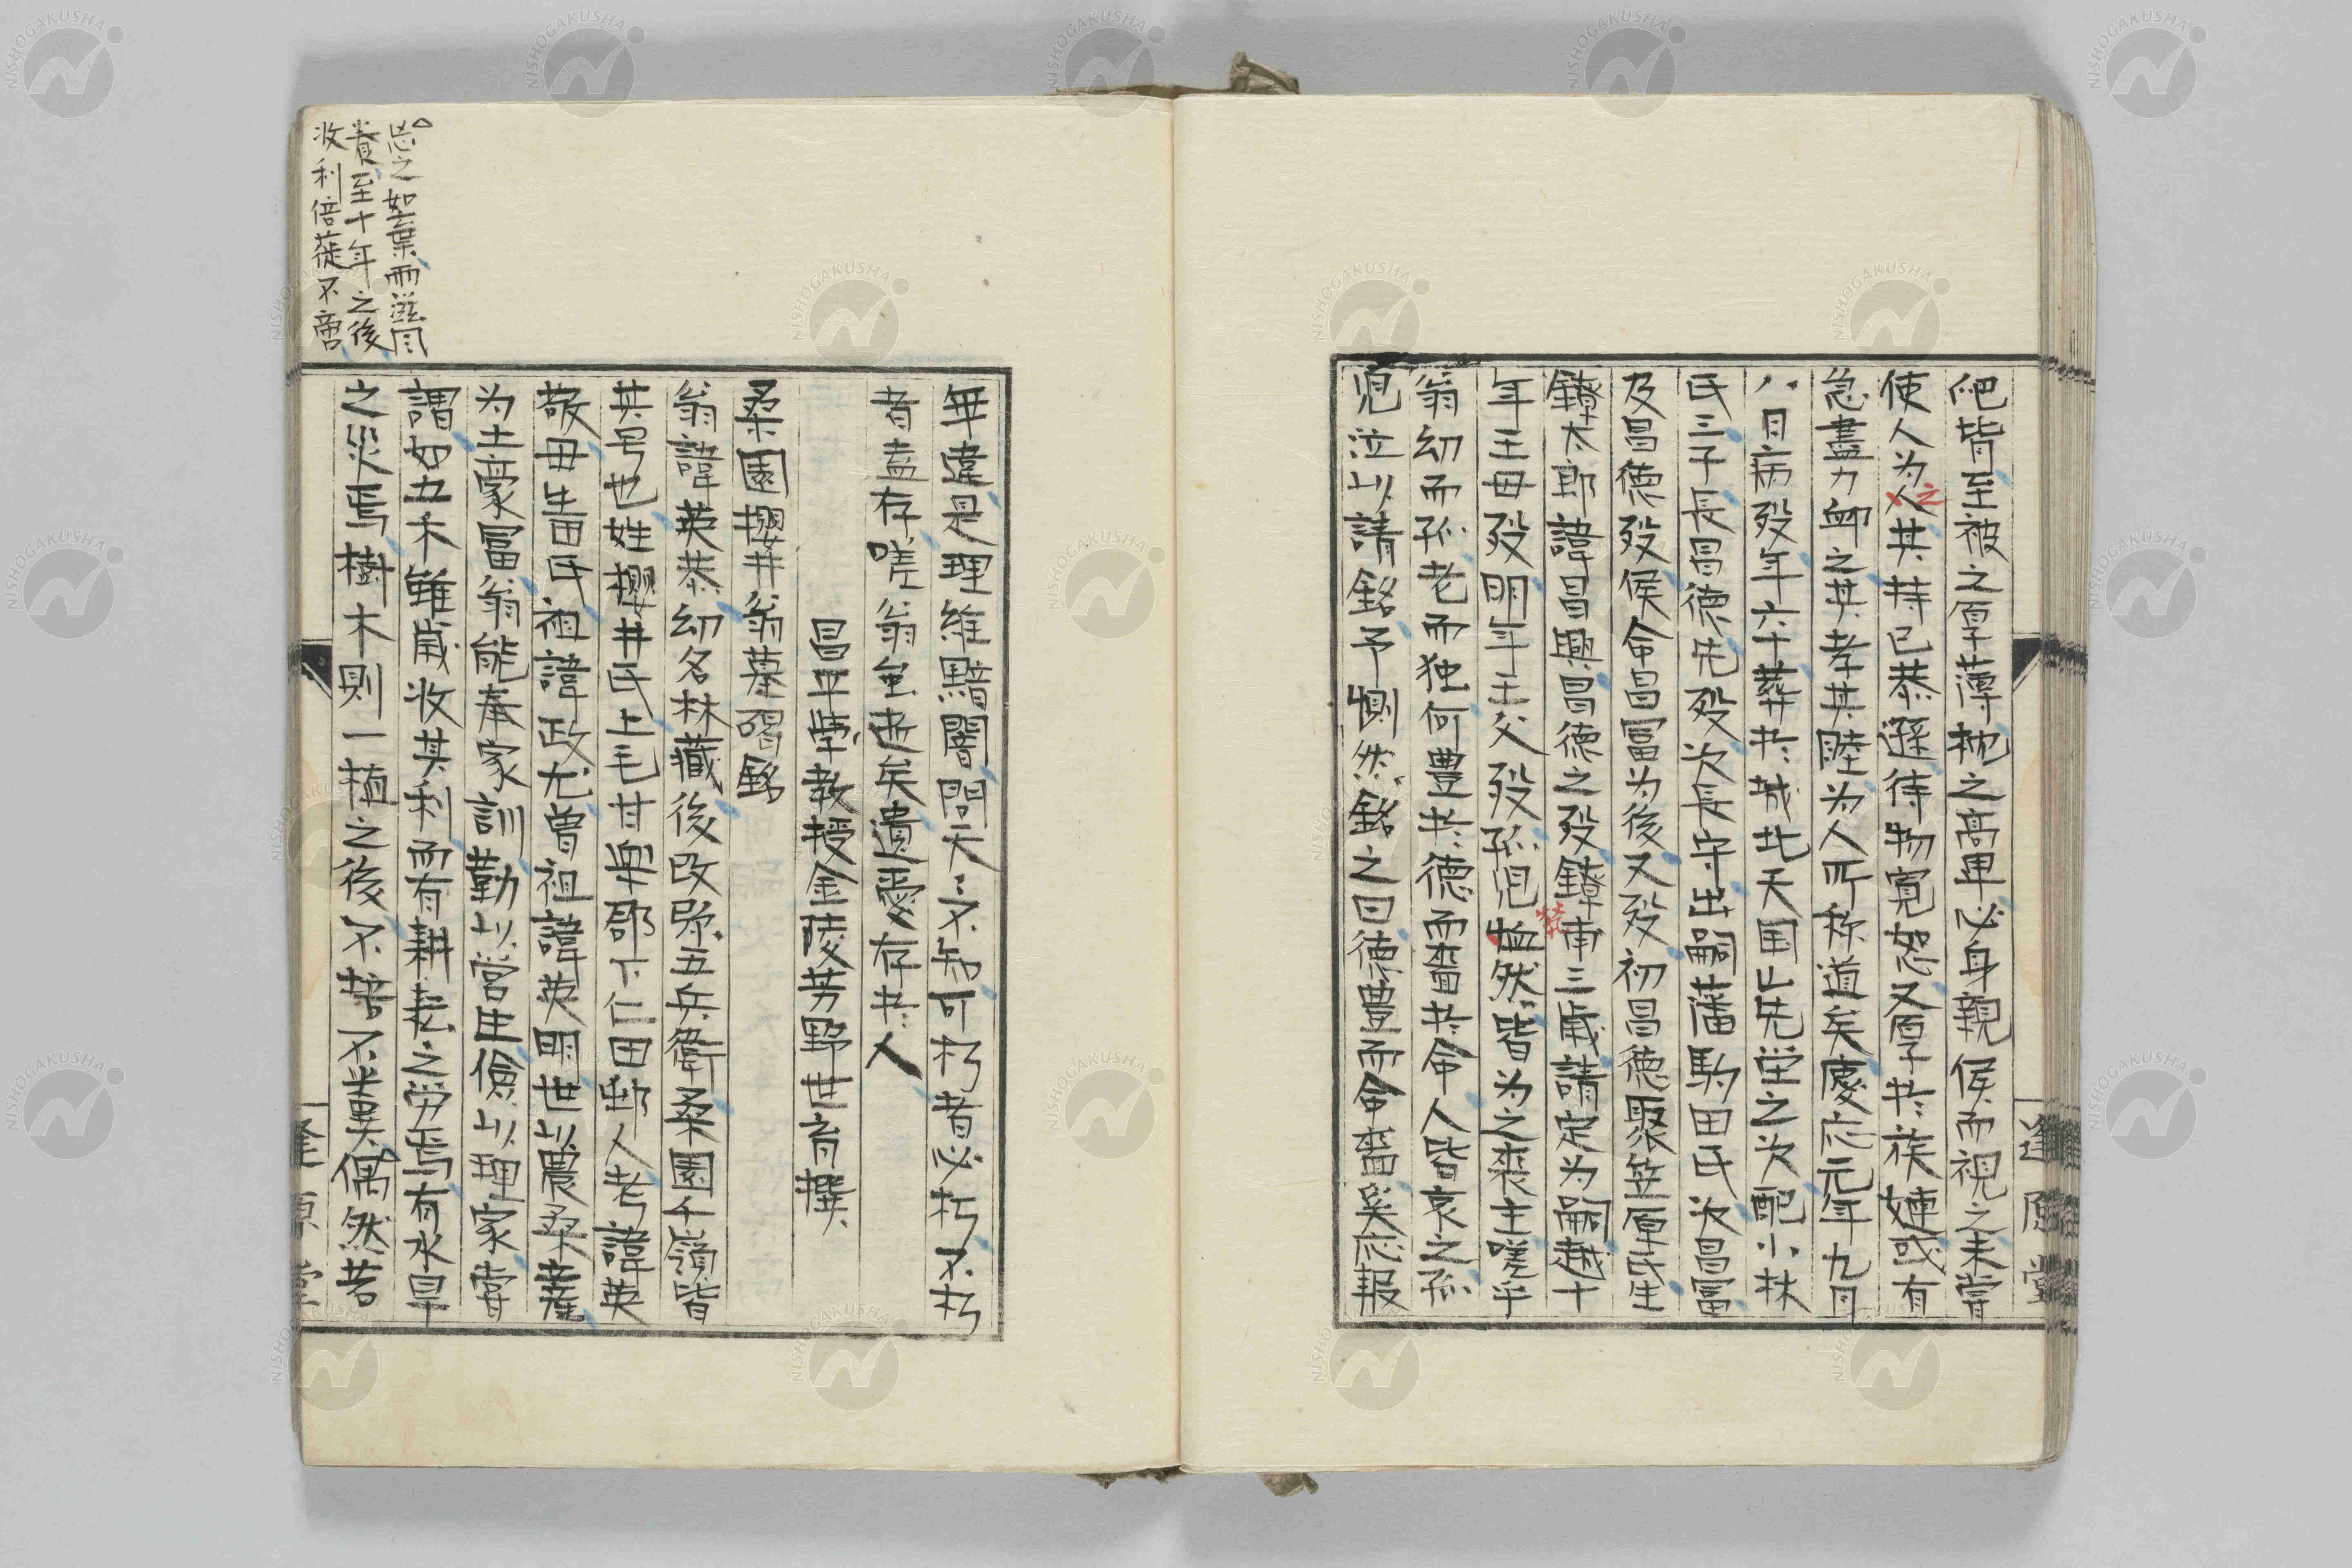 爬皆至被之厚薄枕之高卑必身親侯而視之未嘗
使人为人之其持己恭遜待物寛恕又厚於族姻或有
急盡力卹之其孝其睦为人所称道矣慶応元年九月
八日病殁年六十葬於城北天国山先塋之次配小林
氏三子長昌徳先殁次長守出嗣藩駒田氏次昌冨
及昌徳殁侯命昌冨为後又殁初昌徳娶笠原氏生
鐐太郎諱昌興昌徳之殁鐐甫三歳請定为嗣越十
年王母殁明年王父殁孫児煢然皆为之喪主嗟乎
翁幼而孤老而独何豊於德而嗇於命人皆哀之孫
児泣以請銘予惻然銘之曰德豊而命嗇奚応報
無違是理維黯闇問天々不知可朽者必朽不朽
者盍存嗟翁虽逝矣遺愛存於人
昌平學教授金陵芳野世育撰
桑園櫻井翁墓碣銘
翁諱英恭幼名林藏後改弥五兵衛桑園千嶺皆
其号也姓櫻井氏上毛甘楽郡下仁田邨人考諱英
敬母生田氏祖諱政尤曽祖諱英明世以農桑産
为土豪富翁能奉家訓勤以営生儉以理家嘗
謂如五禾雖歳收其利而有耕耘之労焉有水旱
之災焉樹木則一植之後不培不糞偶然若
忘之如棄而滋风
養至十年之後
收利倍蓰不啻
逢原堂
逢原堂
NISHOGAKUSHA